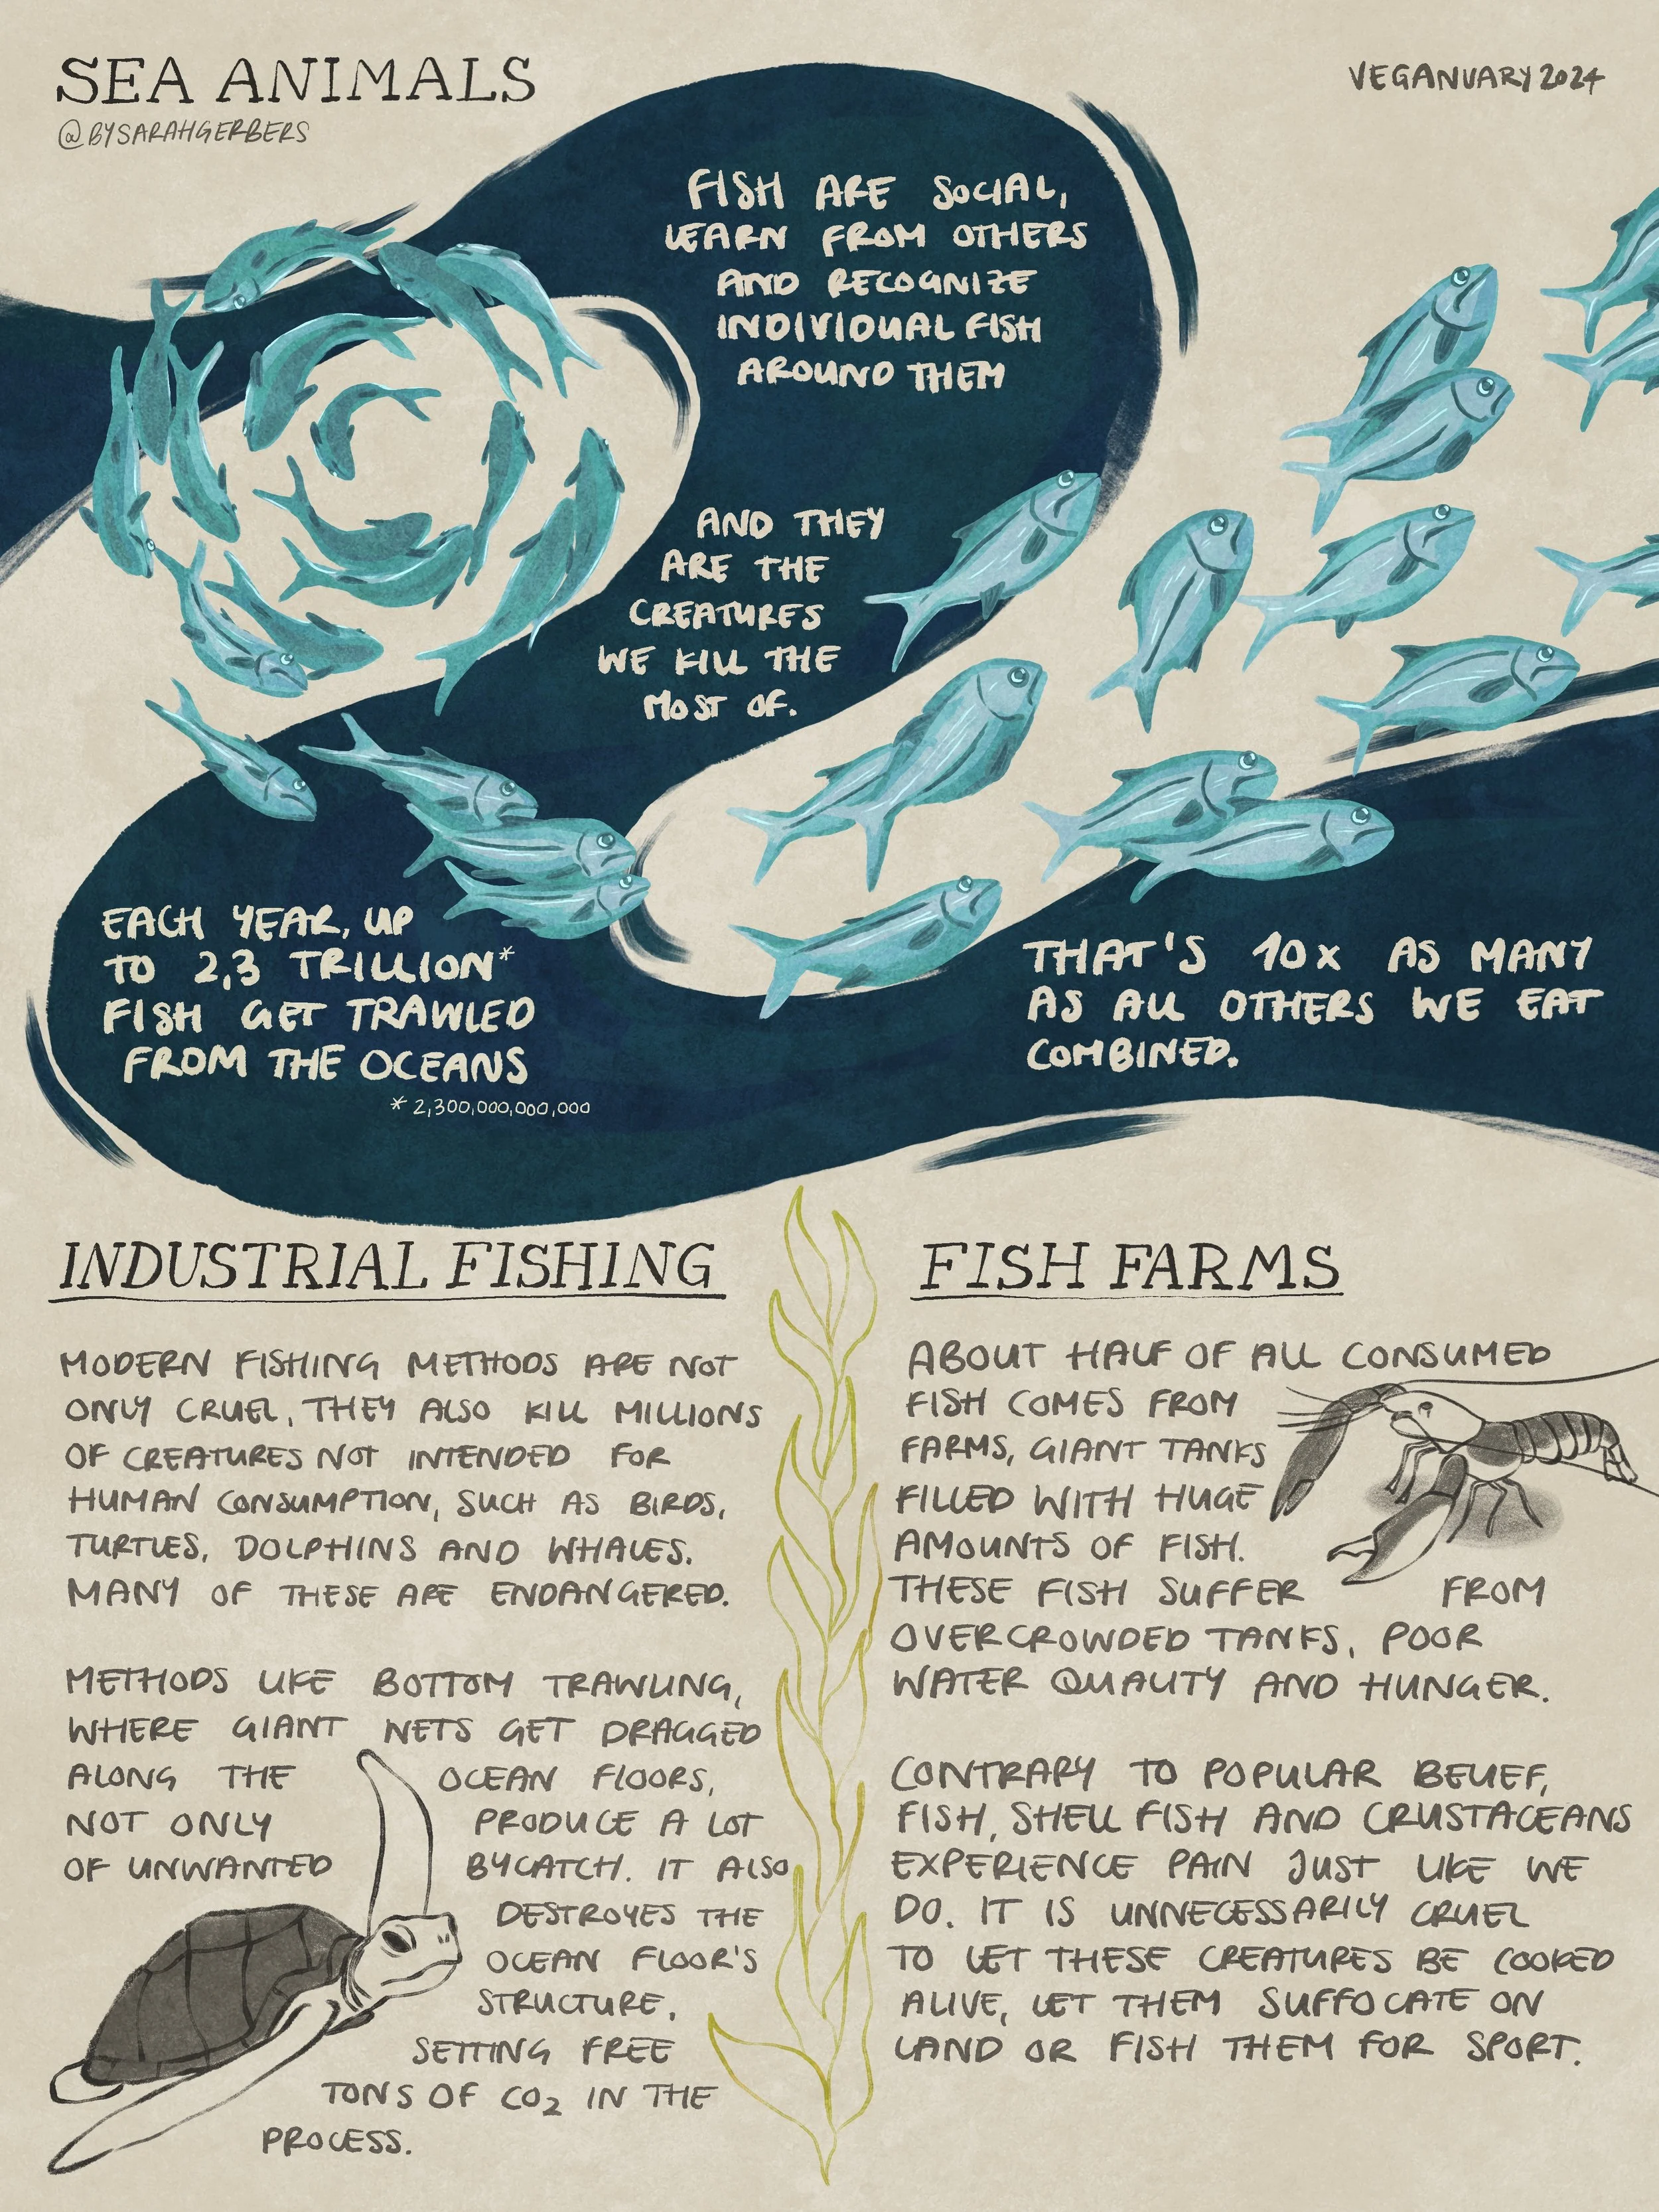 SEA ANIMALS
@BYSARAHGERBERS
VEGANUARY 2024
FISH ARE SOCIAL,
LEARN FROM OTHERS
AND RECOGNIZE
INDIVIDUAL FISH
AROUND THEM
AND THEY
ARE THE
CREATURES
WE KILL THE
MOST OF.
EACH YEAR, UP
TO 2,3 TRILLION*
FISH GET TRAWLED
FROM THE OCEANS
* 2,300,000,000,000
THAT'S 10x AS MANY
AS ALL OTHERS WE EAT
COMBINED.
INDUSTRIAL FISHING
MODERN FISHING METHODS ARE NOT
ONLY CRUEL, THEY ALSO KILL MILLIONS
OF CREATURES NOT INTENDED FOR
HUMAN CONSUMPTION, SUCH AS BIRDS,
TURTLES, DOLPHINS AND WHALES.
MANY OF THESE ARE ENDANGERED.
METHODS LIKE BOTTOM TRAWLING,
WHERE GIANT NETS GET DRAGGED
ALONG THE OCEAN FLOORS,
NOT ONLY PRODUCE A LOT
OF UNWANTED BYCATCH. IT ALSO
DESTROYES THE
OCEAN FLOOR'S
STRUCTURE,
SETTING FREE
TONS OF CO2 IN THE
PROCESS.
FISH FARMS
ABOUT HALF OF ALL CONSUMED
FISH COMES FROM
FARMS, GIANT TANKS
FILLED WITH HUGE
AMOUNTS OF FISH.
THESE FISH SUFFER FROM
OVERCROWDED TANKS, POOR
WATER QUALITY AND HUNGER.
CONTRARY TO POPULAR BELIEF,
FISH, SHELL FISH AND CRUSTACEANS
EXPERIENCE PAIN JUST LIKE WE
DO. IT IS UNNECESSARILY CRUEL
TO LET THESE CREATURES BE COOKED
ALIVE, LET THEM SUFFOCATE ON
LAND OR FISH THEM FOR SPORT.